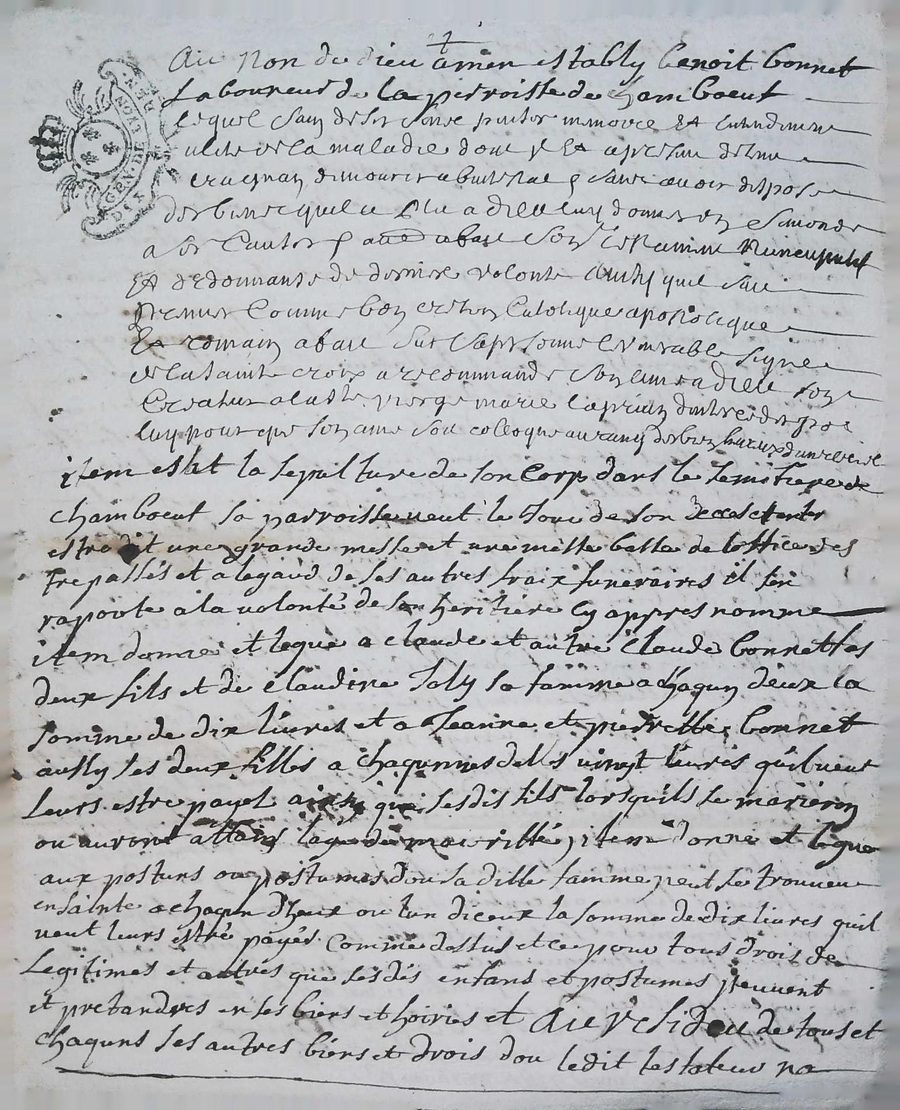 GEN. DE LYON
DIX DEN.
Au Non de dieu amen estably benoit bonnet
Laboureur de la perroisse de Chamboeut
lequel sain de ses sans memoire Et entendemen
de la maladie dont y Est apresan detenu
craignan demourir abintestat sans avoir dispose
des biens quil a plu a dieu luy donner en ce monde
a fait son testament Nuncupatif
Et ordonnance de derniere volonte quil
premier Comme bon cretien Catolique apostolique
Et romain a faict sur sa personne le venerable signe
de la sainte croix a recommande son ame a dieu son
Createur a la ste vierge marie
luy pour que son ame soit colloque au rang des bien hureux dans le ciel
item eslit la sepulture de son Corp dans le semitiere de
chamboeut sa parroisse veut le Jour de son deces
estre dit une grande messe et une messe basse de loffice des
trepassés et a legard de ses autres fraix funeraires il sen
raporte a la volonté de son heritiere cy appres nomme
item donne et legue a claude et autre Claude bonnet ses
deux fils et de Claudine Joly sa famme a chaqun deux la
somme de dix livres et a Jeanne et pierrette bonnet
aussy ses deux filles a chaqunnes delles vingt livres quil veut
leurs estre payet ainsy que sesdis fils lorsquils se marieron
ou auront attains lage de majoritté, item donne et legue
aux postums ou postumes dou sa ditte famme peut se trouver
ensainte a chaqun dheux ou lun diceux la somme de dix livres quil
veut leurs estre payés comme dessus et ce pour tous drois de
Legitimes et autres que sesdis enfans et postumes peuvent
et pretandres en ses biens et hoiries et Au resideu de tous et
chaquns ses autres biens et drois dou ledit testateur na